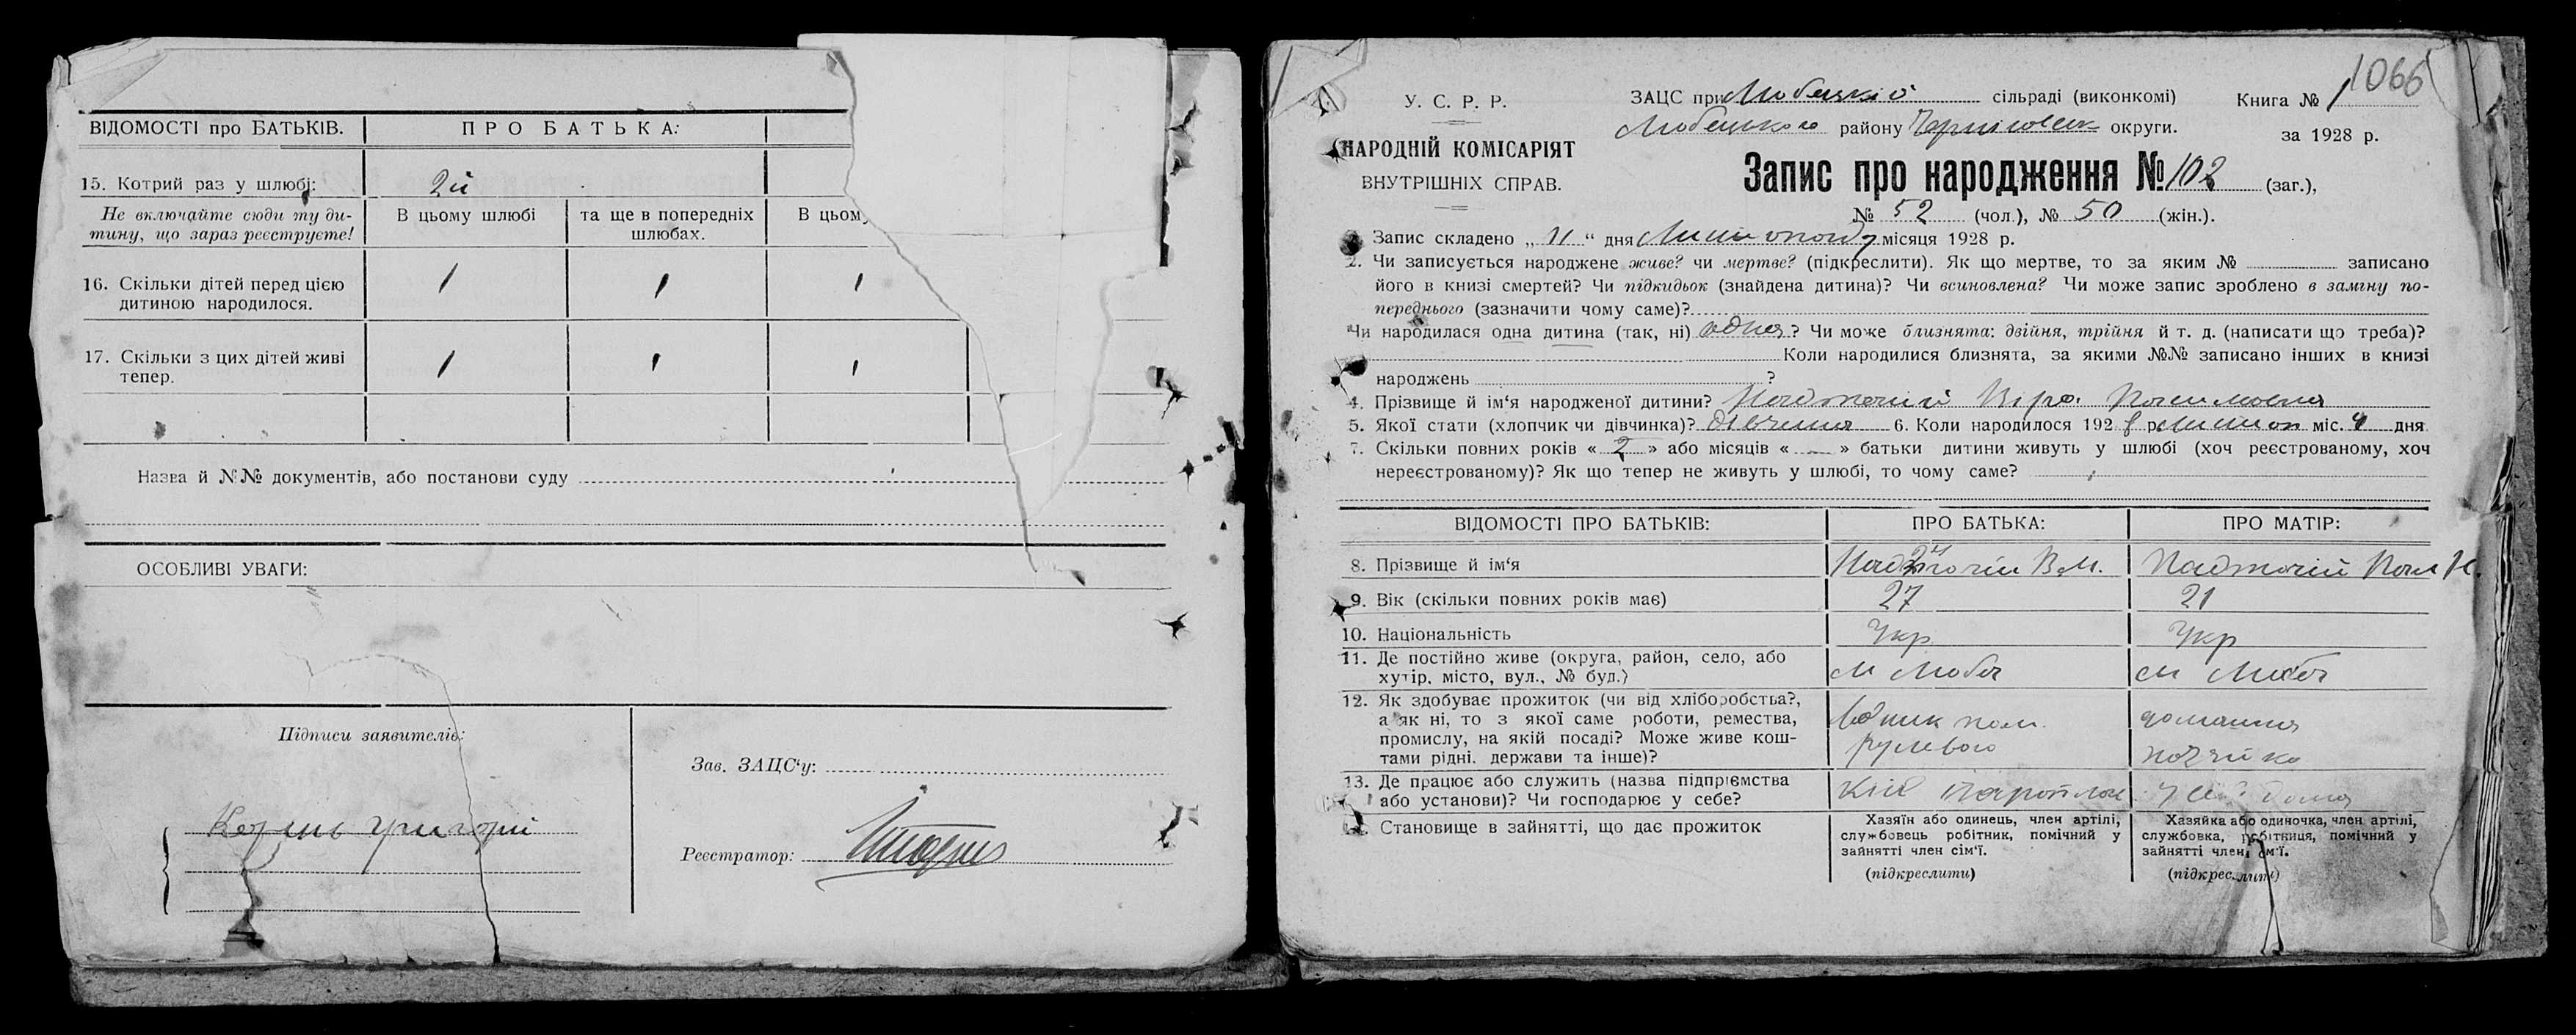 ВІДОМОСТІ про БАТЬКІВ. ПРО БАТЬКА:
15. Котрий раз у шлюбі: 2й
Не включайте сюди ту ди-
тину, що зараз реєструєте!
В цьому шлюбі
та ще в попередніх
шлюбах.
В цьому
16. Скільки дітей перед цією
дитиною народилося.
1 1 1
17. Скільки з цих дітей живі
тепер.
1 1 1
Назва й №№ документів, або постанови суду
ОСОБЛИВІ УВАГИ:
Підписи заявителів:
Григорій
Зав. ЗАЦС‘у:
Реєстратор:
1066
У. С. Р. Р.
НАРОДНІЙ КОМІСАРІЯТ
ВНУТРІШНІХ СПРАВ.
ЗАЦС при Любецкій сільраді (виконкомі)
Любецького району Черніговськ округи.
Книга № 1
за 1928 р.
Запис про народження № 102 (заг.),
№ 52 (чол.), № 50 (жін.).
Запис складено „ 11 “ дня Листопаду місяця 1928 р.
2. Чи записується народжене живе? чи мертве? (підкреслити). Як що мертве, то за яким № записано
його в книзі смертей? Чи підкидьок (знайдена дитина)? Чи всиновлена? Чи може запис зроблено в заміну по-
переднього (зазначити чому саме)?
Чи народилася одна дитина (так, ні) одна? Чи може близнята: двійня, трійня й т. д. (написати що треба)?
Коли народилися близнята, за якими №№ записано інших в книзі
народжень ?
4. Прізвище й ім‘я народженої дитини? Надточій Віра
5. Якої стати (хлопчик чи дівчинка)? дівчинка 6. Коли народилося 192 8 р. Листоп міс. 4 дня
7. Скільки повних років « 2 » або місяців « — » батьки дитини живуть у шлюбі (хоч реєстрованому, хоч
нереєстрованому)? Як що тепер не живуть у шлюбі, то чому саме?
ВІДОМОСТІ ПРО БАТЬКІВ: ПРО БАТЬКА: ПРО МАТІР:
8. Прізвище й ім‘я Надточій В.М. Надточій
9. Вік (скільки повних років має) 27 21
10. Національність Укр Укр
11. Де постійно живе (округа, район, село, або
хутір, місто, вул., № буд.)
м Любеч м Любеч
12. Як здобуває прожиток (чи від хліборобства?,
а як ні, то з якої саме роботи, ремества,
промислу, на якій посаді? Може живе кош-
тами рідні, держави та інше)?
водник пом.
рулевого
домашня
хазяйка
13. Де працює або служить (назва підприємства
або установи)? Чи господарює у себе?
14. Становище в зайнятті, що дає прожиток
Хазяїн або одинець, член артілі,
службовець робітник, помічний у
зайнятті член сім‘ї.
(підкреслити)
Хазяйка або одиночка, член артілі,
службовка, робітниця, помічний у
зайнятті член сім‘ї.
(підкреслити)